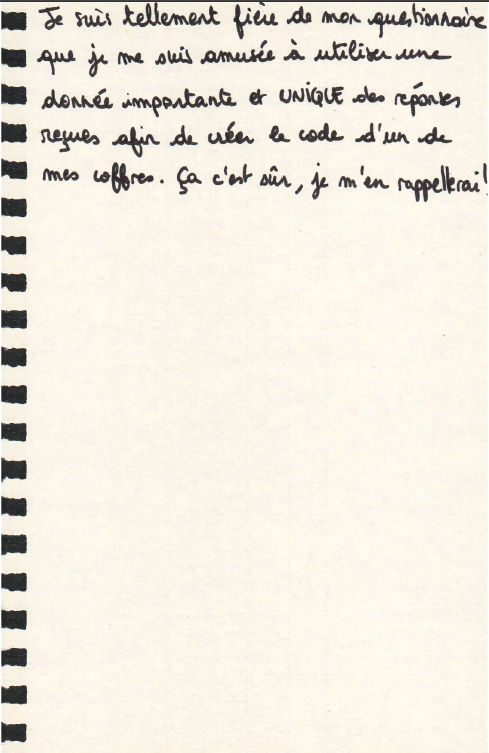 Je suis tellement fière de mon questionnaire
que je me suis amusée à utiliser une
donnée importante et UNIQUE des réponses
reçues afin de créer le code d'un de
mes coffres. Ça c'est sûr, je m'en rappellerai!